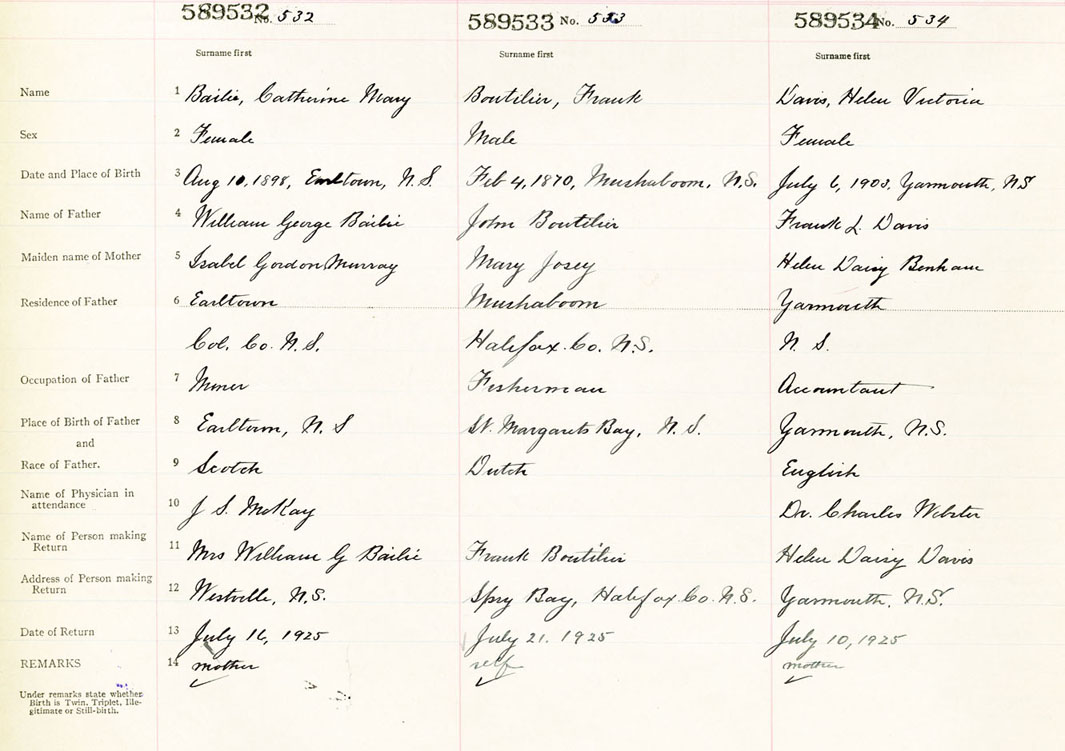 589532 No. 532 589533 No. 533 589534 No. 534
Surname first Surname first Surname first
Name 1 Bailie, Catherine Mary Boutilier, Frank Davis, Helen Victoria
Sex 2 Female Male Female
Date and Place of Birth 3 Aug 10, 1898, Earltown, N.S. Feb 4, 1870, Mushaboom, N.S. July 6, 1903, Yarmouth, NS
Name of Father 4 William George Bailie John Boutilier Frank L. Davis
Maiden name of Mother 5 Isabel Gordon Murray Mary Josey Helen Daisy Benham
Residence of Father 6 Earltown Mushaboom Yarmouth
Col. Co. N.S. Halifax Co. N.S. N. S.
Occupation of Father 7 Miner Fisherman Accountant
Place of Birth of Father 8 Earltown, N. S St. Margarets Bay, N. S. Yarmouth, N.S.
and
Race of Father. 9 Scotch Dutch English
Name of Physician in
attendance 10 J S. McKay Dr. Charles Webster
Name of Person making
Return 11 Mrs William G Bailie Frank Boutilier Helen Daisy Davis
Address of Person making
Return 12 Westville, N.S. Spry Bay, Halifax Co. N.S. Yarmouth, N.S.
Date of Return 13 July 16, 1925 July 21. 1925 July 10, 1925
REMARKS 14 mother self mother
Under remarks state whether
Birth is Twin. Triplet, Ille-
gitimate or Still-birth.